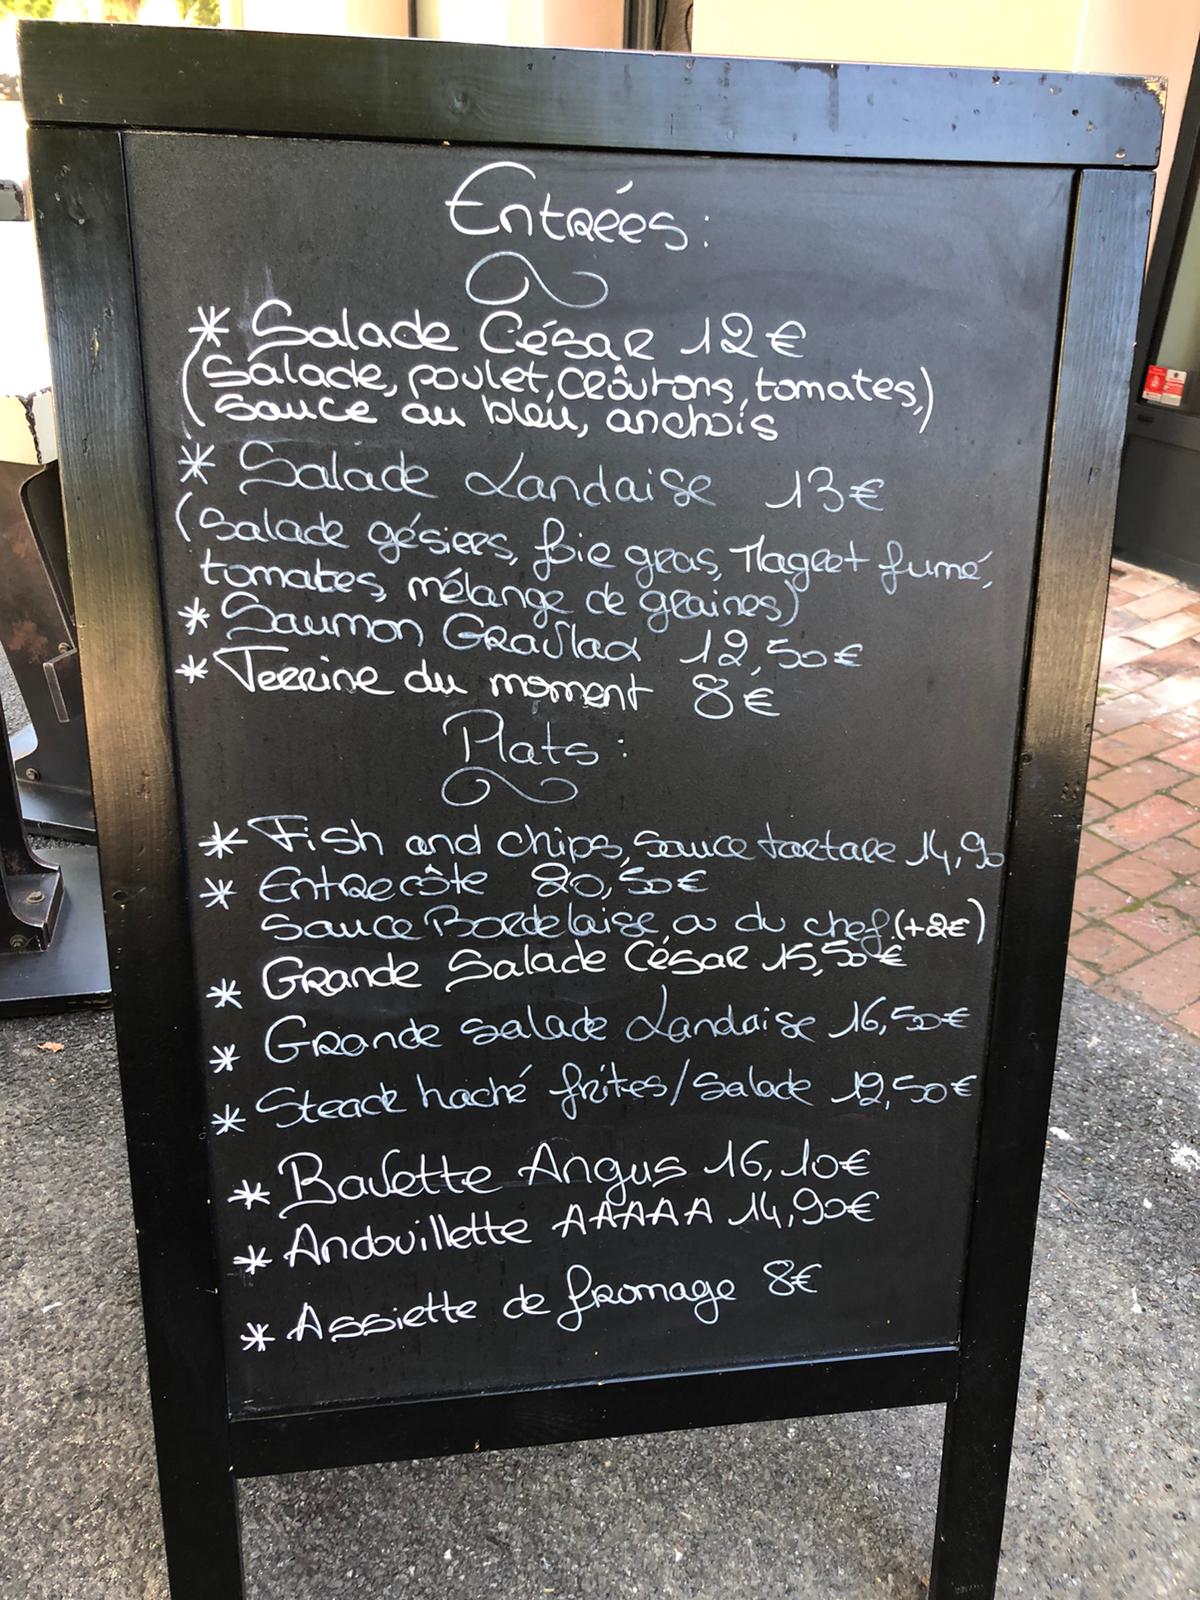 Entrées:
* Salade César 12€
(Salade, poulet, croûtons, tomates,)
sauce au bleu, anchois
* Salade Landaise 13€
(Salade gésiers, foie gras, Magret fumé,
tomates, mélange de graines)
* Saumon Gravlax 12,50€
* Terrine du moment 8€
Plats:
* Fish and chips, sauce tartare 14,90
* Entrecôte 20,50€
Sauce Bordelaise, ou du chef (+2€)
* Grande Salade César 15,50€
* Grande salade Landaise 16,50€
* Steack haché frites/salade 12,50€
* Bavette Angus 16,10€
* Andouillette AAAAA 14,90€
* Assiette de fromage 8€